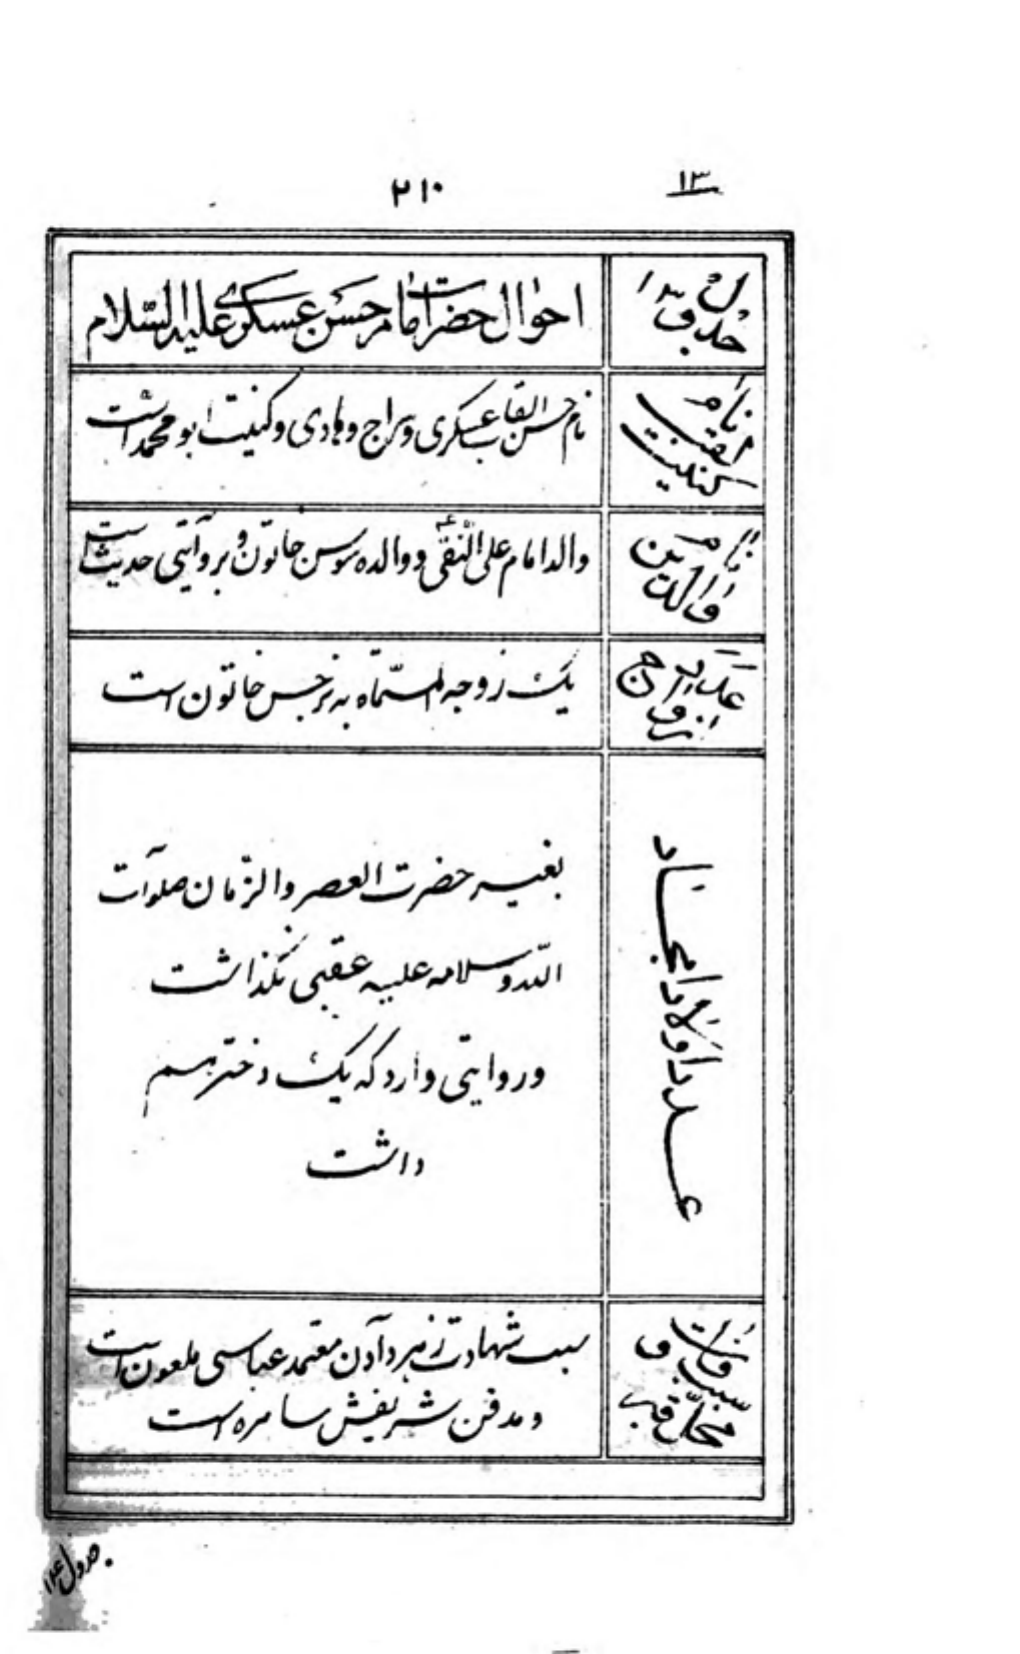 ۱۳
۲۱۰
جدول
احوال حضرت امام حسن عسکری علیه السلام
نام
لقب
کنیت
نام حسن القاب عسکری و سراج و هادی و کنیت ابو محمد است
نام
والدین
والد امام علی النقی ع و والده سوسن خاتون و بروایتی حدیث است
عدد
ازواج
یک زوجه المسماه به نرجس خاتون است
عدد اولاد امجاد
بغیر حضرت العصر والزمان صلوات
الله وسلامه علیه عقبی نگذاشت
وروایتی وارد که یک دختر هم
داشت
سبب وفات و
محل قبر
سبب شهادت زهر دادن معتمد عباسی ملعون است
ومدفن شریفش سامره است
جدول